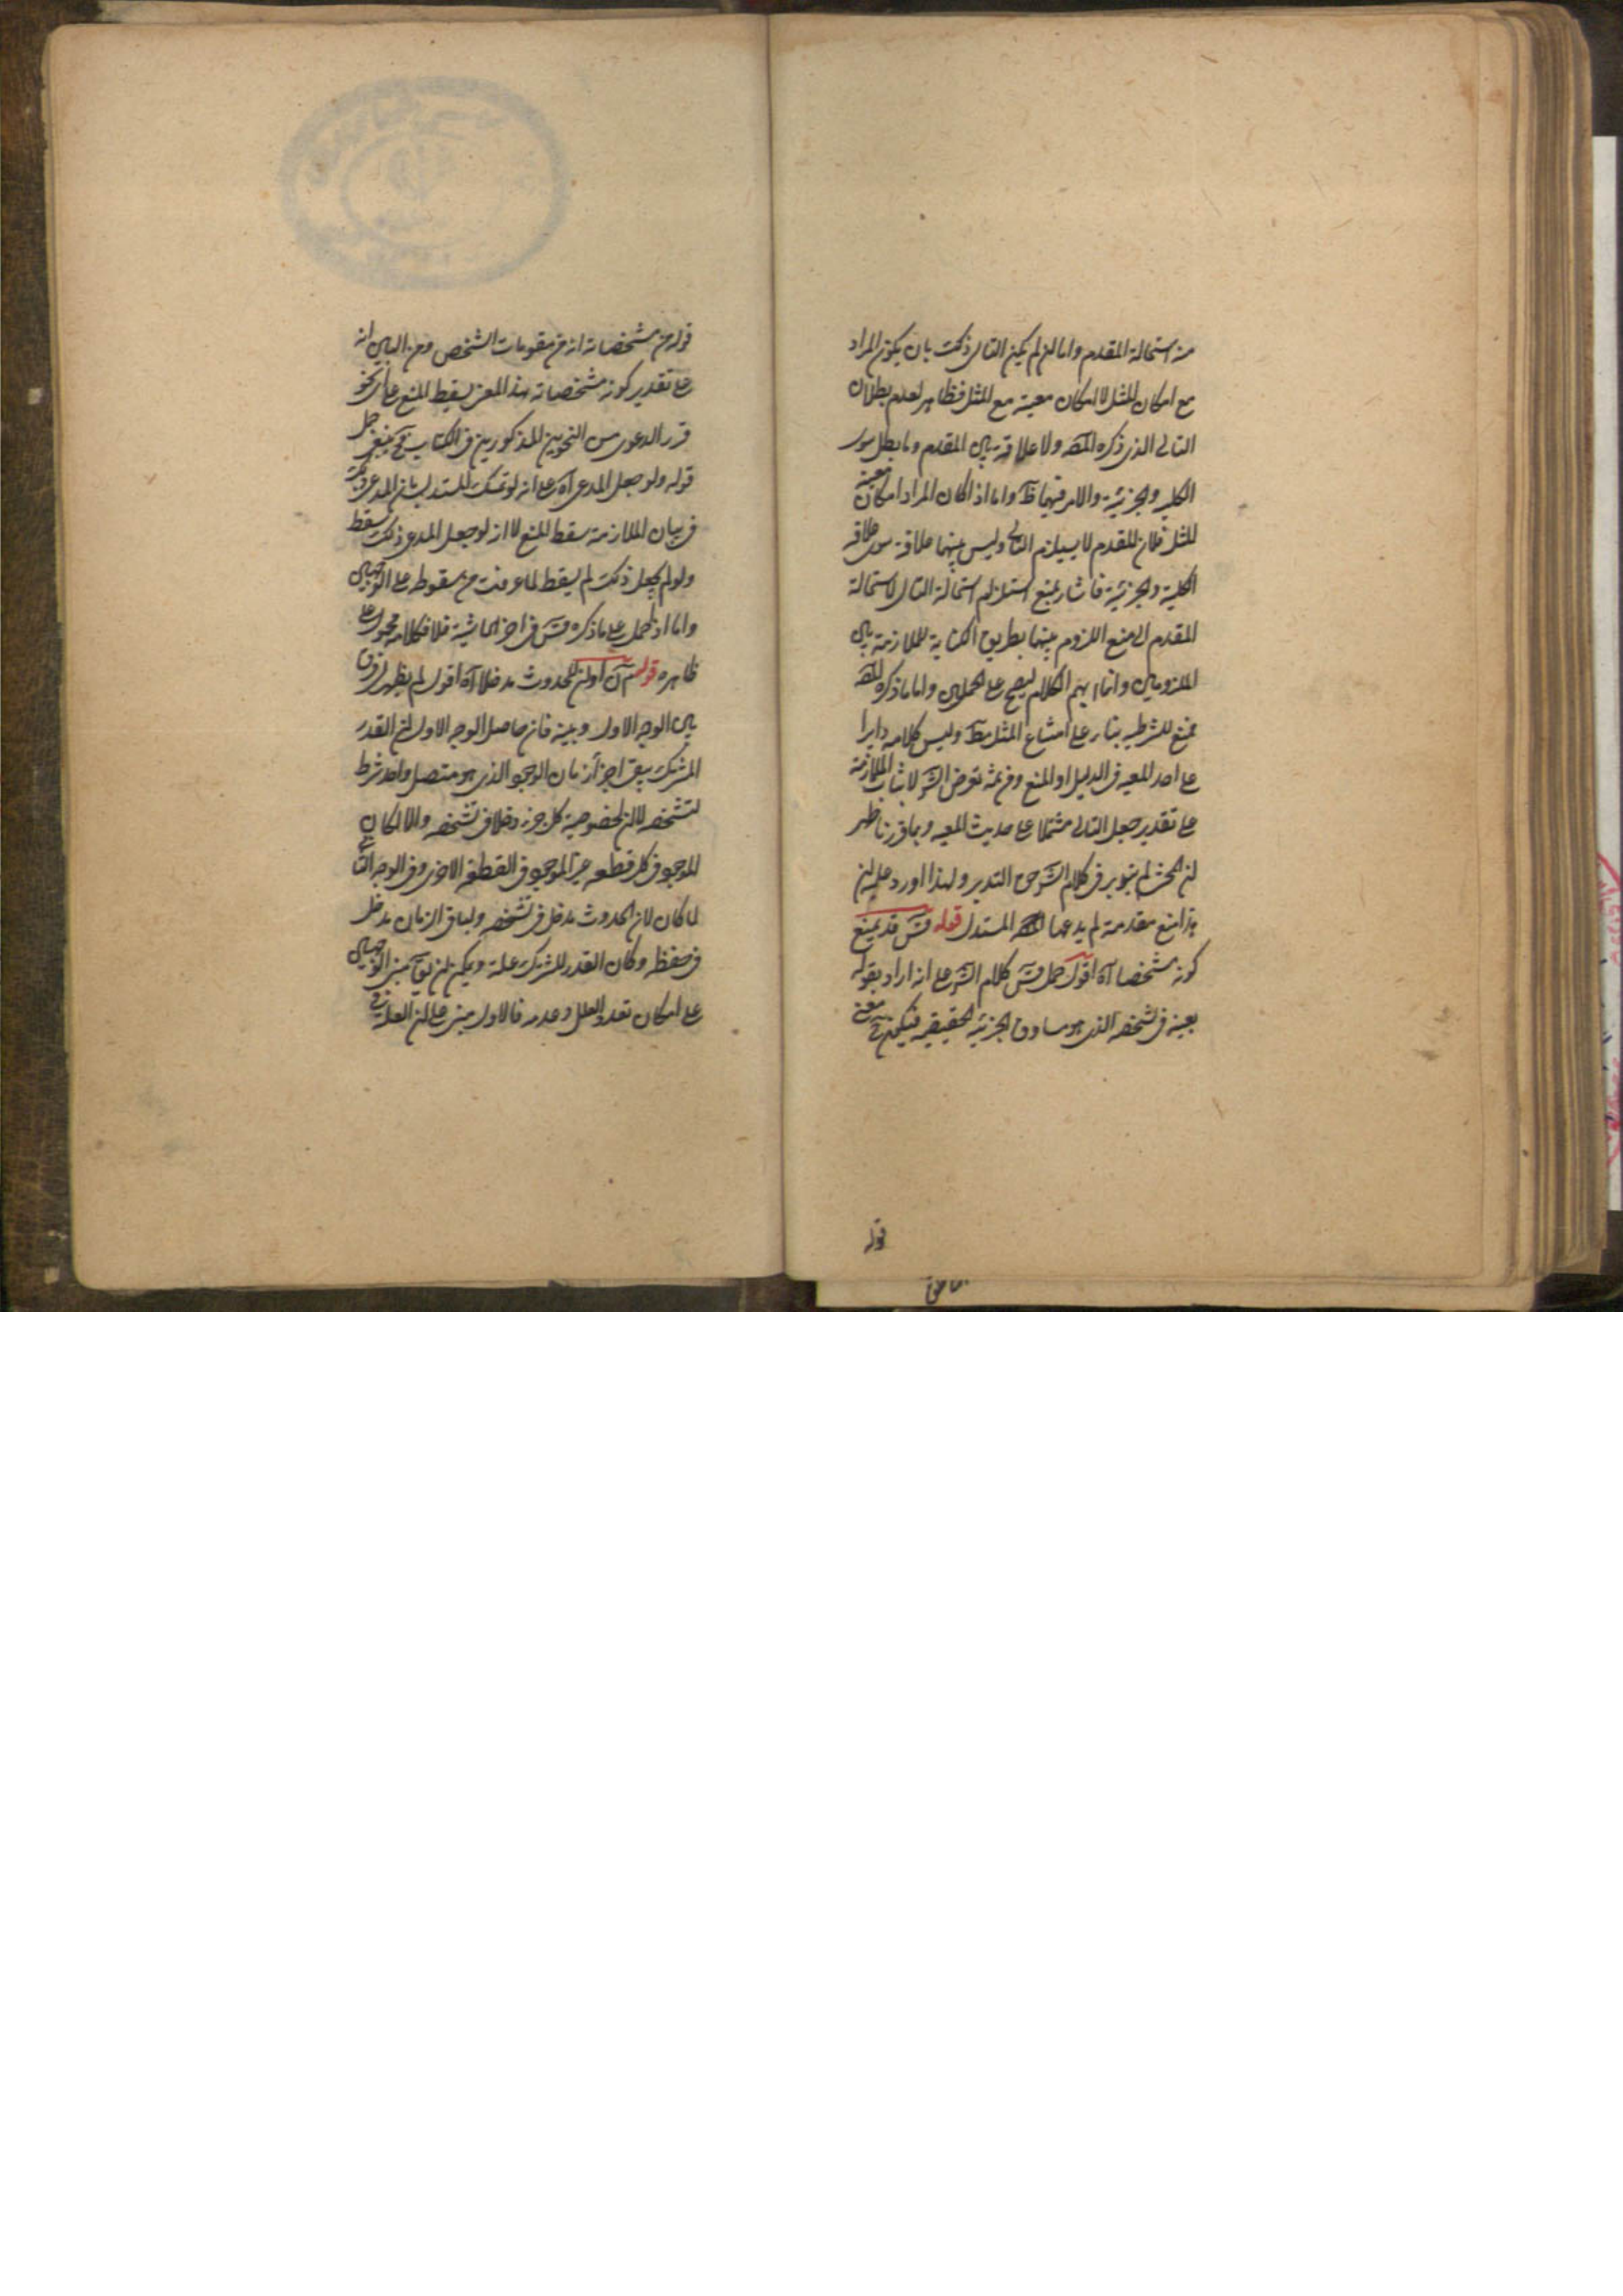 من استحالة المقدم واما ان لم يكن التالى ذلك بان يكون المراد
مع امكان المثل لا امكان معيته مع المثل فظاهر لعدم بطلان
التالى الذى ذكره المصـ ولا علاقة بين المقدم وما بطل سوى
الكلية والجزئية والامر فيهما ظـ واما اذا كان المراد امكان معيته
المثل فلان المقدم لا يستلزم التالى وليس بينهما علاقة سوى علاقة
الكلية والجزئية فاشار بمنع استلزام استحالة التالى لاستحالة
المقدم الى منع اللزوم بينهما بطريق الكناية للملازمة بين
الملزومين وانما ابهم الكلام ليصح على المحملين واما ما ذكره المصـ
فمنع للشرطية بناء على امتناع المثل مطـ وليس كلامه دايرا
على اخذ المعية فى الدليل او المنع ومن ثمة تعرض الشـ لاثبات الملازمة
على تقدير جعل التالى مشتملا على حديث المعية وبما قررنا ظهر
ان المحشى لم يتدبر فى كلام الشـ حق التدبر ولهذا اورد عليه ان
هذا منع مقدمة لم يدعها المستدل قوله قس قد يمنع
كونه مشخصا آه اقول حمل قس كلام الشـ على انه اراد بقوله
بعينه فى تشخصه الذى هو مساوق الجزئية الحقيقية فيكون ح معنى
قوله
قوله من مشخصاته انه من مقومات الشخص ومن البين انه
على تقدير كونه مشخصاته بهذا المعنى يسقط المنع على اى نحو
قرر الدعوى من النحوين المذكورين فى الكتاب فح ينبغى حمل
قوله ولو جعل المدعى آه على انه لو تمسك المستدل بان المدعى
فى بيان الملازمة سقط المنع لا انه لو جعل المدعى ذلك سقط
ولو لم يجعل ذلك لم يسقط لما عرفت من سقوطه على الوجهين
واما اذا حمل على ما ذكره قس فى اخر الحاشية فلا فكلامه محمول على
ظاهره قوله آن اولن للحدوث مدخلا آه اقول لم يظهر فرق
بين الوجه الاول وبينه فان حاصل الوجه الاول ان القدر
المشترك بين اجزأ زمان الوجود الذى هو متصل واحد شرط
لتشخصه لا ان لخصوصية كل جزء دخلا فى تشخصه والا لكان
الموجود فى كل قطعه غير الموجود فى القطعة الاخرى وفى الوجه الثانى
لما كان لان الحدوث مدخل فى تشخصه ولباقى الزمان مدخل
فى حفظه وكان القدر المشترك علة ويمكن ان يقـ مبنى الوجهين
على امكان تعدد العلل وعدمه فالاول مبنى على ان العلة